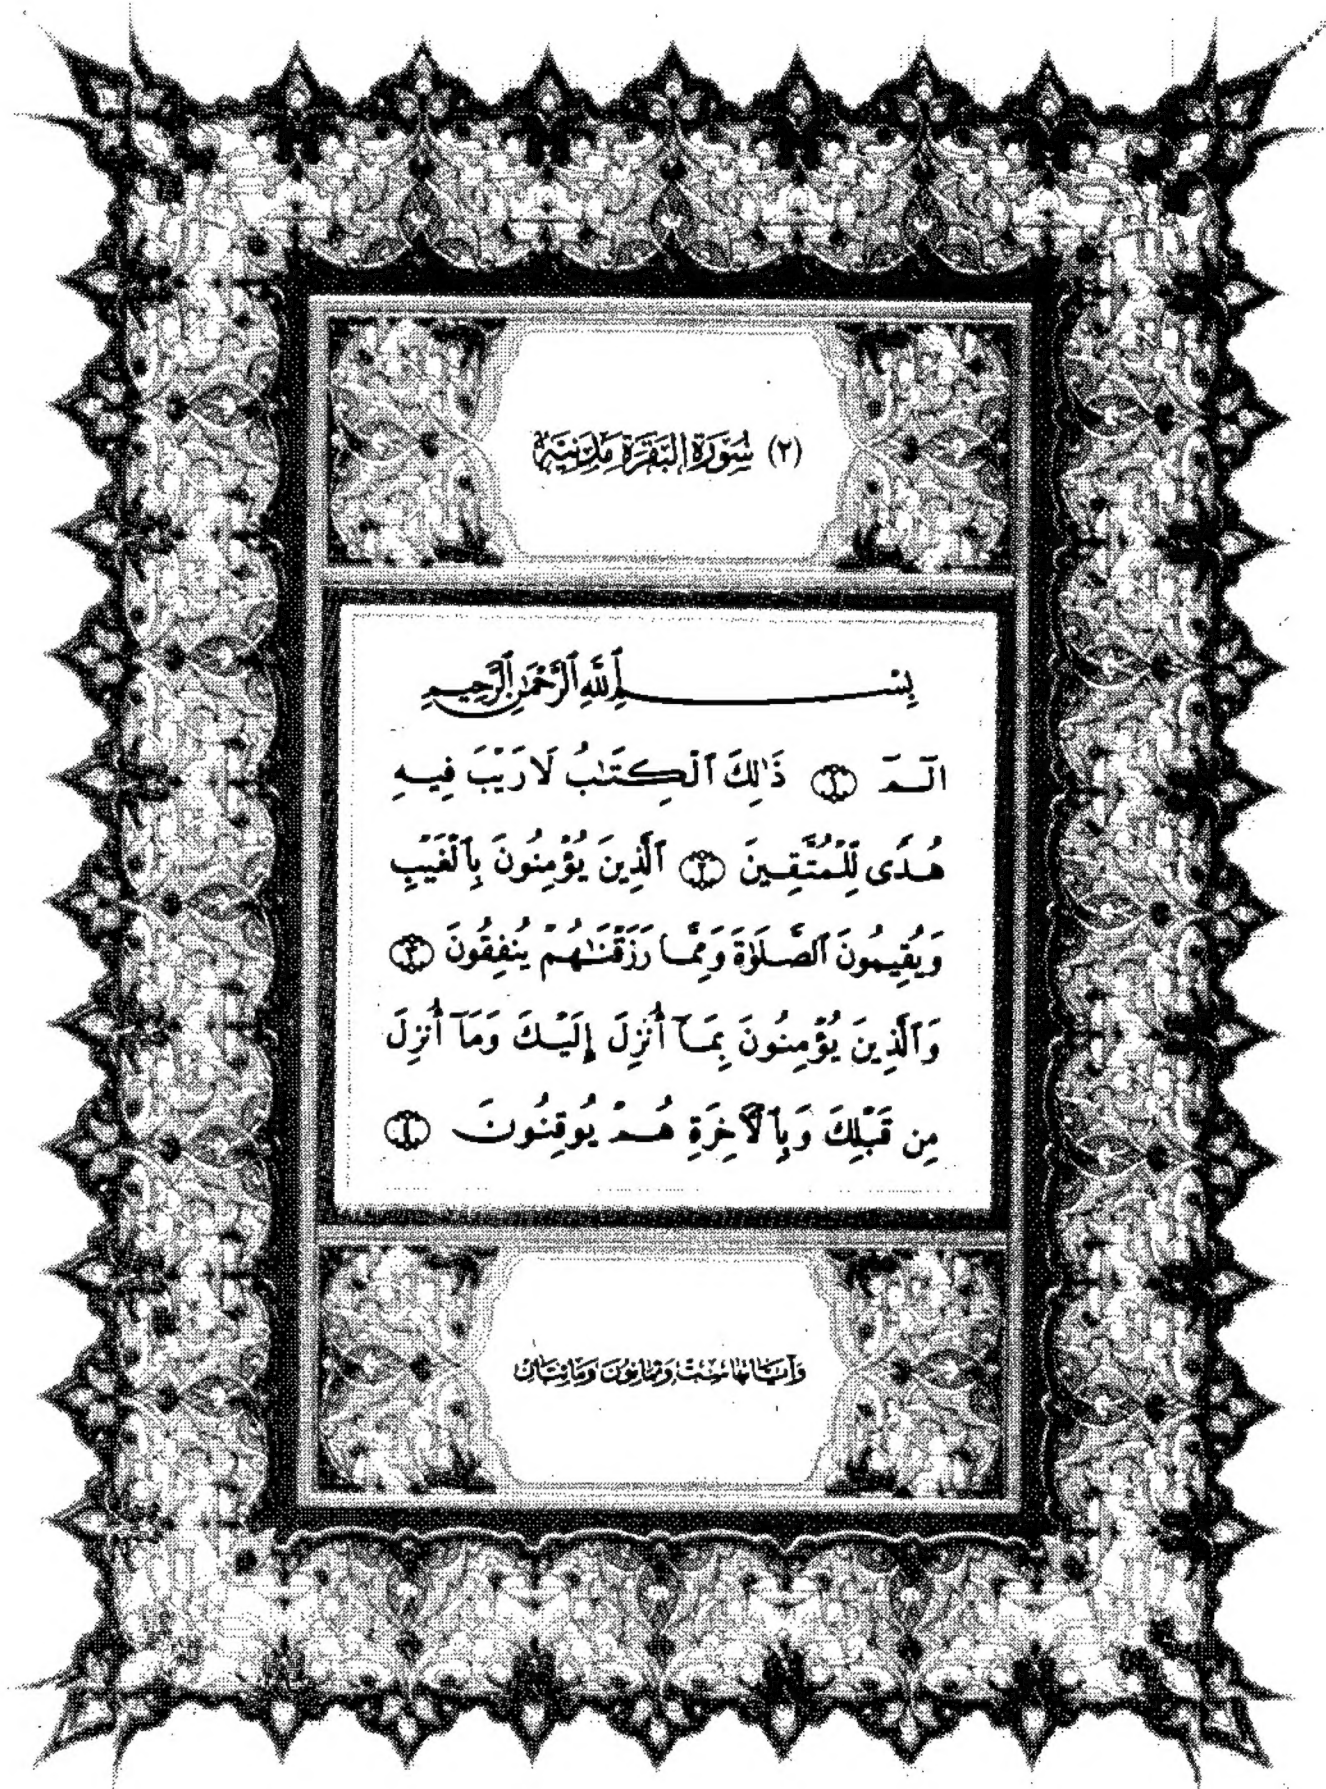 (٢) سُورَةُ البَقَرَةِ مَدَنِيَّة
بِسْمِ ٱللَّهِ ٱلرَّحْمَٰنِ ٱلرَّحِيمِ
الٓمٓ ١ ذَٰلِكَ ٱلْكِتَٰبُ لَا رَيْبَ فِيهِ
هُدًى لِّلْمُتَّقِينَ ٢ ٱلَّذِينَ يُؤْمِنُونَ بِٱلْغَيْبِ
وَيُقِيمُونَ ٱلصَّلَوٰةَ وَمِمَّا رَزَقْنَٰهُمْ يُنفِقُونَ ٣
وَٱلَّذِينَ يُؤْمِنُونَ بِمَآ أُنزِلَ إِلَيْكَ وَمَآ أُنزِلَ
مِن قَبْلِكَ وَبِٱلْأَخِرَةِ هُمْ يُوقِنُونَ ٤
وَآيَاتُهَا سِتٌّ وَثَمَانُونَ وَمَائِتَانِ